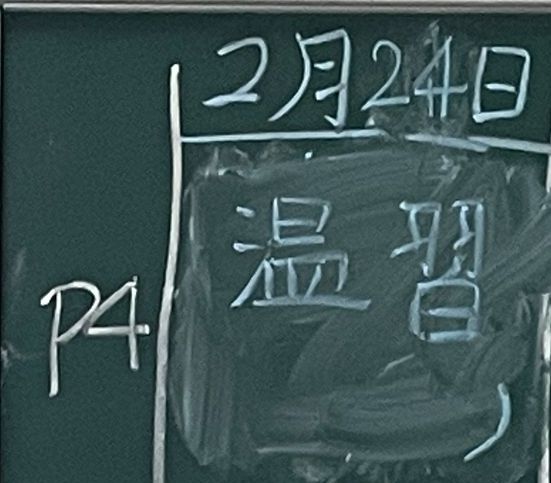 2月24日
温習
P4